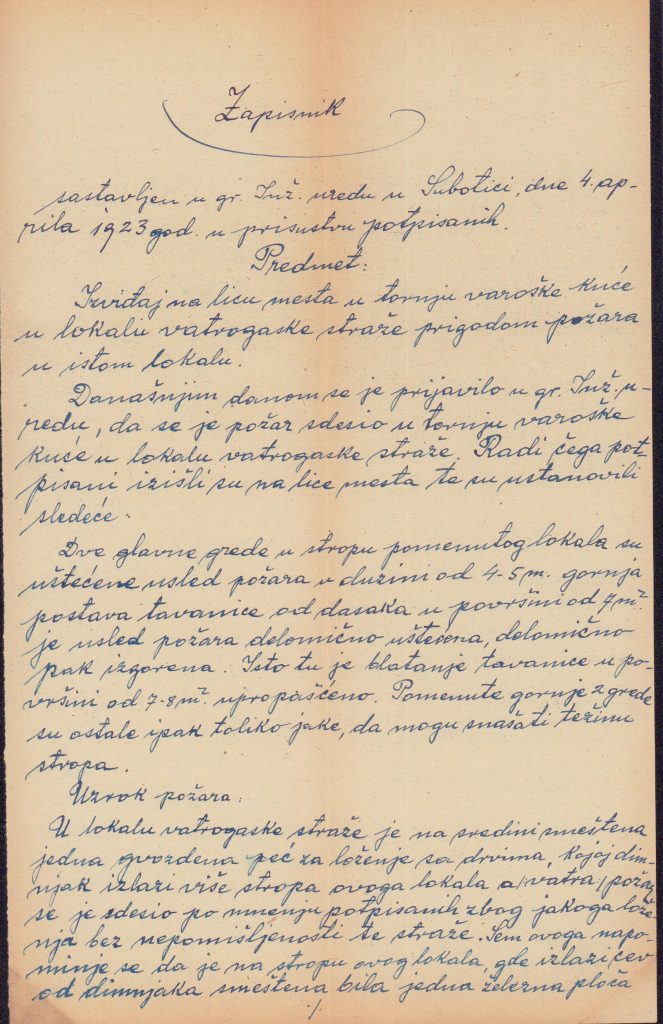 Zapisnik
sastavljen u gr. Inž. uredu u Subotici, dne 4. ap-
rila 1923 god. u prisustvu potpisanih.
Predmet:
Izviđaj na licu mesta u tornju varoške kuće
u lokalu vatrogaske straže prigodom požara
u istom lokalu.
Današnjim danom se je prijavilo u gr. Inž. u-
redu, da se je požar sdesio u tornju varoške
kuće u lokalu vatrogaske straže. Radi čega pot-
pisani izišli su na lice mesta te su ustanovili
sledeće:
Dve glavne grede u stropu pomenutog lokala su
uštećene usled požara u duzini od 4-5 m. gornja
postava tavanice od dasaka u površini od 7 m².
je usled požara delomično uštećena, delomično
pak izgorena. Isto tu je blatanje tavanice u po-
vršini od 7-8 m². upropašćeno. Pomenute gornje 2 grede
su ostale ipak toliko jake, da mogu snašati težinu
stropa.
Uzrok požara:
U lokalu vatrogaske straže je na sredini smeštena
jedna gvozdena peć za loženje sa drvima, kojoj dim-
njak izlazi više stropa ovoga lokala a /vatra/ požar
se je sdesio po mnenju potpisanih zbog jakoga lože-
nja bez nepomišljenosti te straže. Sem ovoga napo-
minje se da je na stropu ovog lokala, gde izlazi cev
od dimnjaka smeštena bila jedna železna ploča
./.